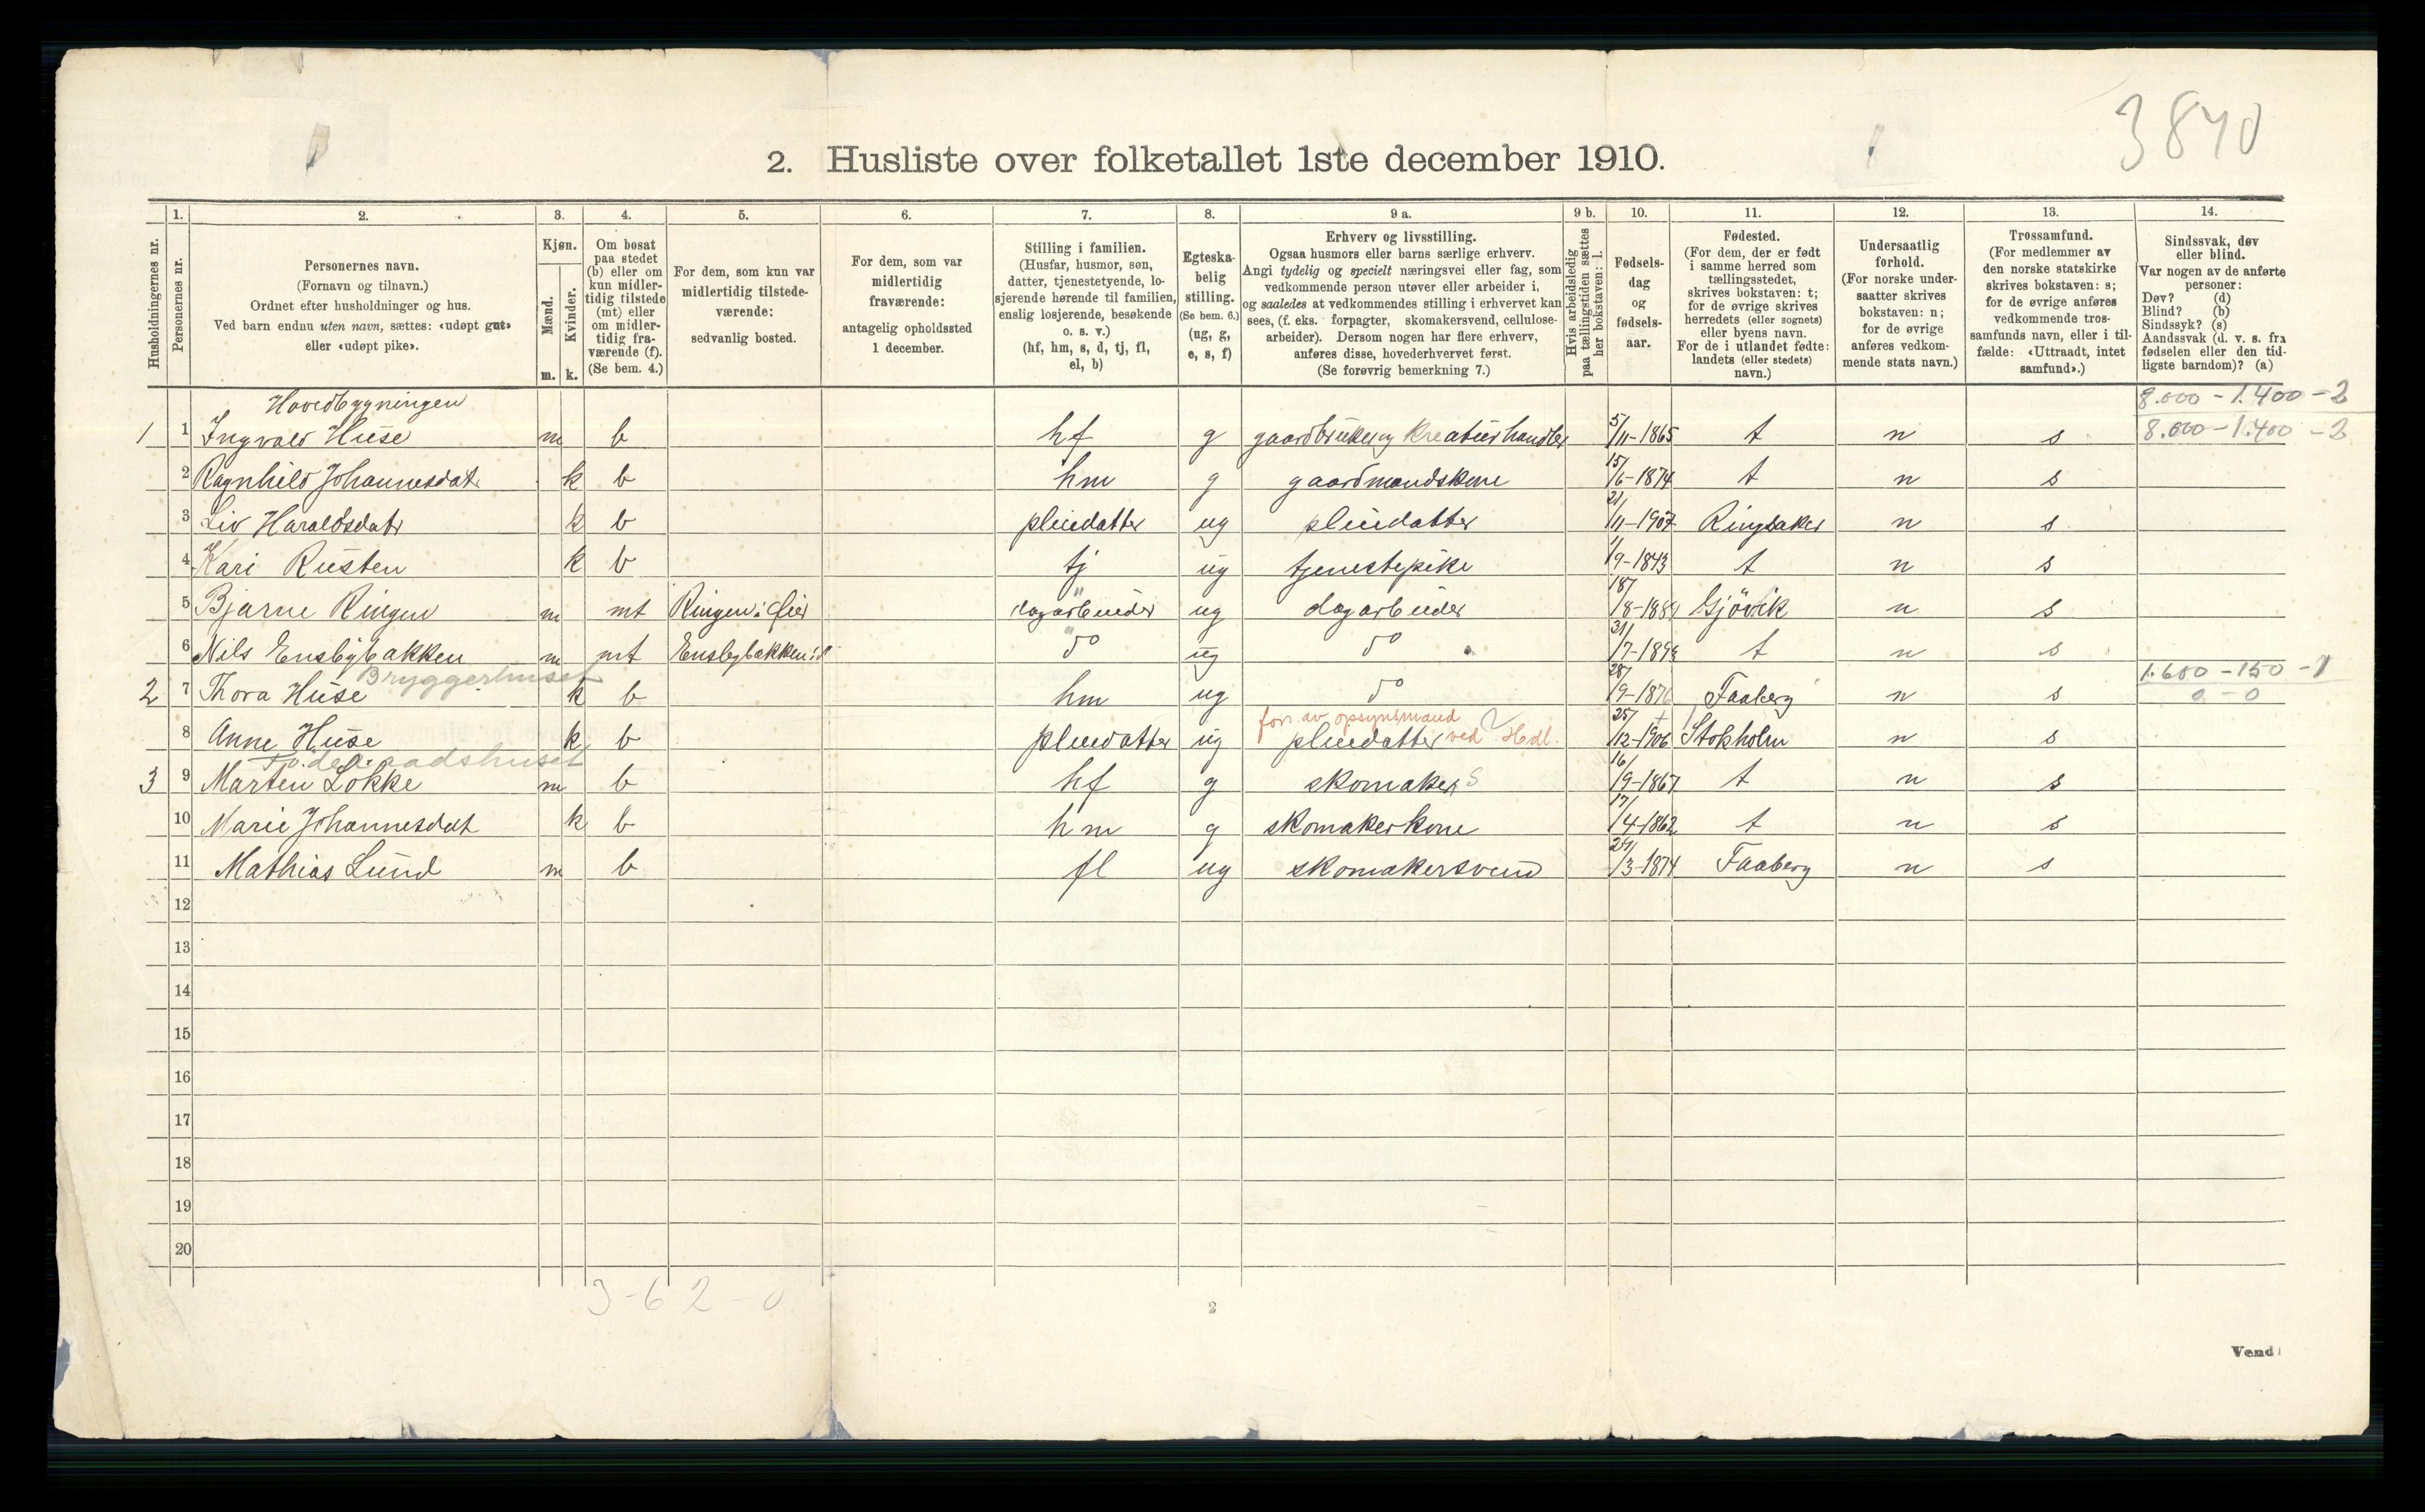 3840
2. Husliste over folketallet 1ste december 1910.
Husholdningernes nr.
1.
Personernes nr.
2.
Personernes navn.
(Fornavn og tilnavn.)
Ordnet efter husholdninger og hus.
Ved barn endnu uten navn, sættes: «udøpt gut»
eller «udøpt pike».
3.
Kjøn.
Mænd.
m.
Kvinder.
k.
4.
Om bosat
paa stedet
(b) eller om
kun midler-
tidig tilstede
(mt) eller
om midler-
tidig fra-
værende (f).
(Se bem. 4.)
5.
For dem, som kun var
midlertidig tilstede-
værende:
sedvanlig bosted.
6.
For dem, som var
midlertidig
fraværende:
antagelig opholdssted
1 december.
7.
Stilling i familien.
(Husfar, husmor, søn,
datter, tjenestetyende, lo-
sjerende hørende til familien,
enslig losjerende, besøkende
o. s. v.)
(hf, hm, s, d, tj, fl,
el, b)
8.
Egteska-
belig
stilling.
(Se bem. 6.)
(ug, g,
e, s, f)
9 a.
Erhverv og livsstilling.
Ogsaa husmors eller barns særlige erhverv.
Angi tydelig og specielt næringsvei eller fag, som
vedkommende person utøver eller arbeider i,
og saaledes at vedkommendes stilling i erhvervet kan
sees, (f. eks. forpagter, skomakersvend, cellulose-
arbeider). Dersom nogen har flere erhverv,
anføres disse, hovederhvervet først.
(Se forøvrig bemerkning 7.)
9 b.
Hvis arbeidsledig
paa tællingstiden sættes
her bokstaven: l.
10.
Fødsels-
dag
og
fødsels-
aar.
11.
Fødested.
(For dem, der er født
i samme herred som
tællingsstedet,
skrives bokstaven: t;
for de øvrige skrives
herredets (eller sognets)
eller byens navn.
For de i utlandet fødte:
landets (eller stedets)
navn.)
12.
Undersaatlig
forhold.
(For norske under-
saatter skrives
bokstaven: n;
for de øvrige
anføres vedkom-
mende stats navn.)
13.
Trossamfund.
(For medlemmer av
den norske statskirke
skrives bokstaven: s;
for de øvrige anføres
vedkommende tros-
samfunds navn, eller i til-
fælde: «Uttraadt, intet
samfund».)
14.
Sindssvak, døv
eller blind.
Var nogen av de anførte
personer:
Døv? (d)
Blind? (b)
Sindssyk? (s)
Aandssvak (d. v. s. fra
fødselen eller den tid-
ligste barndom)? (a)
Hovedbygningen 8.000 - 1.400 - 2
1 1 Ingvald Huse m b hf g gaardbruker og Kreaturhandler 5/11-1865 t n s 8.000 - 1.400 - 2
2 Ragnhild Johannesdat. k b hm g gaardmandskone 15/6-1874 t n s
3 Liv Haraldsdatr k b pleiedatter ug pleiedatter 21/11-1907 Ringsaker n s
4 Kari Rusten k b tj ug tjenestepike 1/9-1843 t n s
5 Bjarne Ringen m mt Ringen i Øier dagarbeider ug dagarbeider 18/8-1884 Gjövik n s
6 Nils Ensbybakken m mt Ensbybakken i d° d° ug d° 31/7-1893 t n s
Bryggerhuset 1.600 - 150 - 1
2 7 Thora Huse k b hm ug d° 28/9-1876 Faaberg n s 0 - 0
fors. av opsynsmand
8 Anne Huse k b pleiedatter ug pleiedatter ved Hdl. 25/12-1906 Stokholm n s
Föderaadshuset
3 9 Marten Lökke m b hf g skomaker S 16/9-1867 t n s
10 Marie Johannesdat k b hm g skomakerkone 17/4-1862 t n s
11 Mathias Lund m b fl ug skomakersvend 24/3-1874 Faaberg n s
12
13
14
15
16
17
18
19
20
3-6 2-0
2
Vend